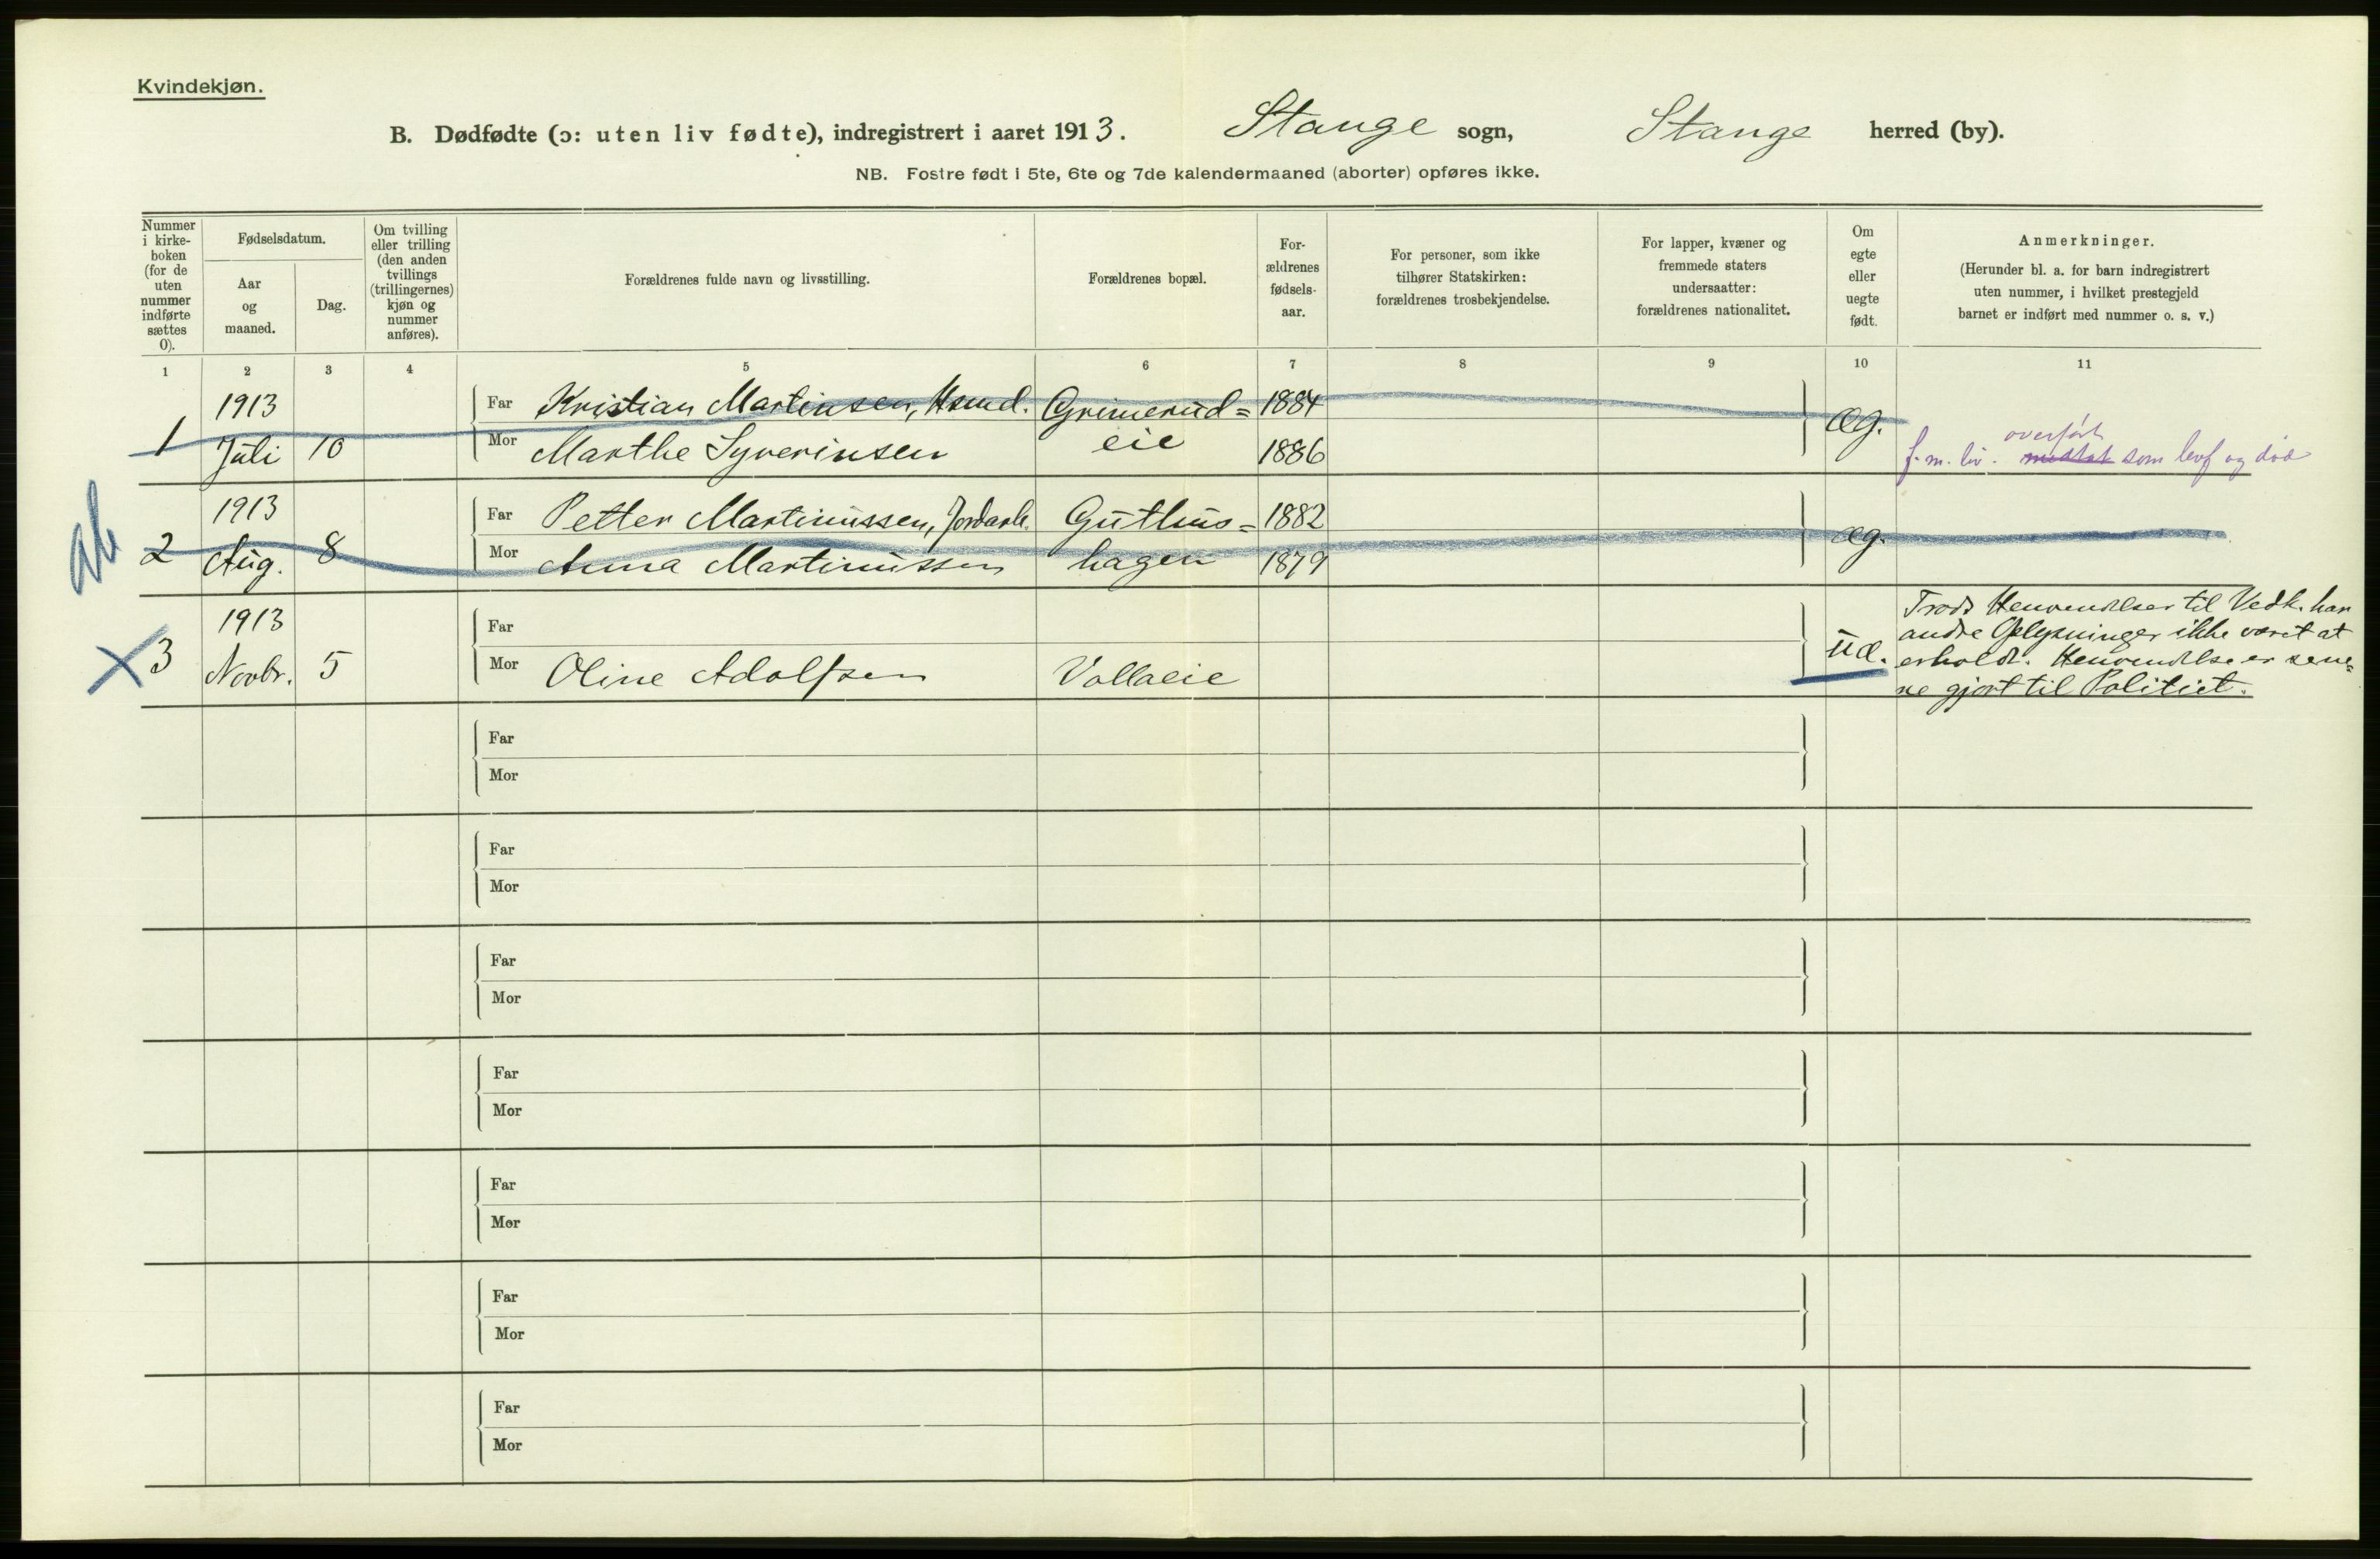 Kvindekjøn.
B. Dødfødte (ɔ: uten liv fødte), indregistrert i aaret 1913. Stange sogn, Stange herred (by).
NB. Fostre født i 5te, 6te og 7de kalendermaaned (aborter) opføres ikke.
Nummer
i kirke-
boken
(for de
uten
nummer
indførte
sættes
0).
Fødselsdatum.
Aar
og
maaned.
Dag.
Om tvilling
eller trilling
(den anden
tvillings
(trillingernes)
kjøn og
nummer
anføres).
Forældrenes fulde navn og livsstilling.
Forældrenes bopæl.
For-
ældrenes
fødsels-
aar.
For personer, som ikke
tilhører Statskirken:
forældrenes trosbekjendelse.
For lapper, kvæner og
fremmede staters
undersaatter:
forældrenes nationalitet.
Om
egte
eller
uegte
født.
Anmerkninger.
(Herunder bl. a. for barn indregistrert
uten nummer, i hvilket prestegjeld
barnet er indført med nummer o. s. v.)
1 2 3 4 5 6 7 8 9 10 11
1913 Far Kristian Martinsen, Husmd. Grimerud= 1884
1 Juli 10 Mor Marthe Syverinsen eie 1886 Æg.
overført
f. m. liv. som levf og død
1913 Far Petter Martinussen, Jordarb. Guthus= 1882
ab 2 Aug. 8 Mor Anna Martinussen hagen 1879 Æg.
1913 Far
X 3 Novbr. 5 Mor Oline Adolfsen Vollaeie Uæ.
Trods Henvendelser til Vedk. har
andre Oplysninger ikke været at
erholde. Henvendelse er sene=
re gjort til Politiet.
Far
Mor
Far
Mor
Far
Mor
Far
Mor
Far
Mor
Far
Mor
Far
Mor